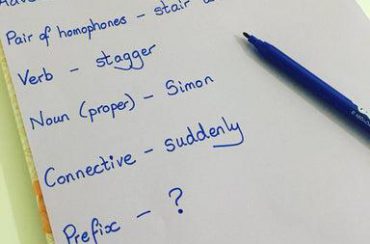 Pair of homophones - stair
Verb - stagger
Noun (proper) - Simon
Connective - suddenly
Prefix - ?